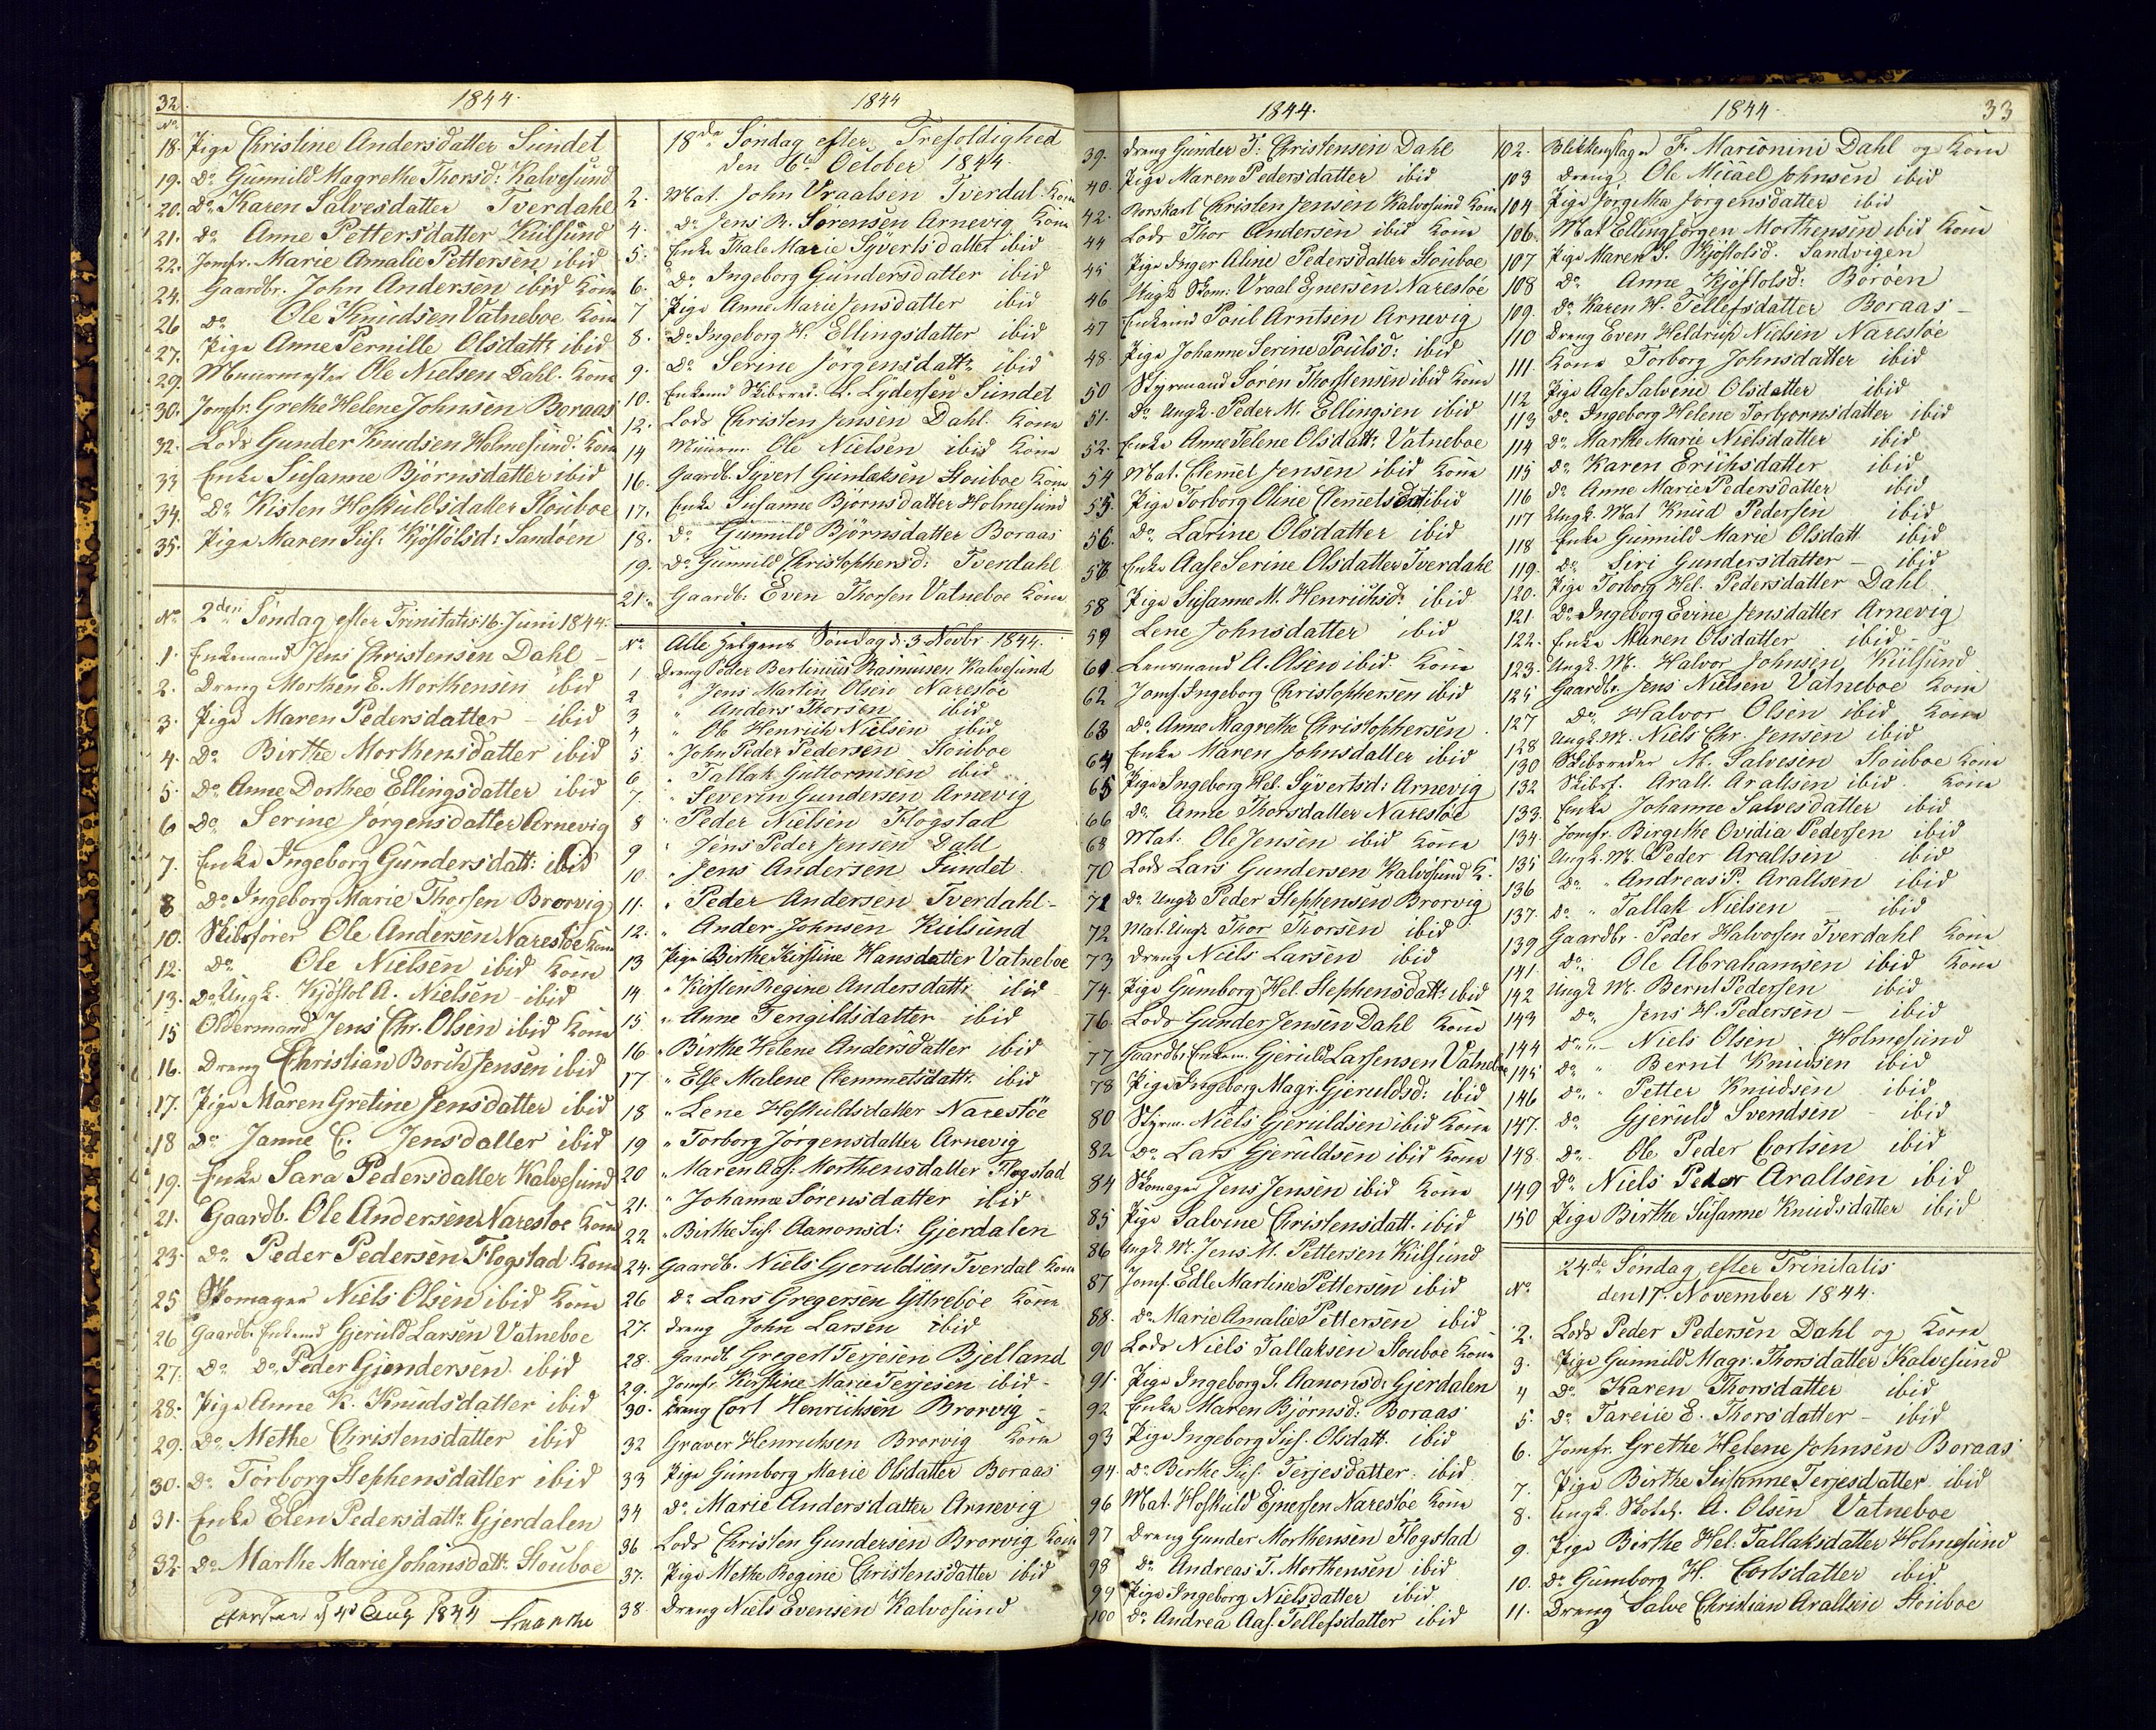 32.
1844.
No
18. Pige Christine Andersdatter Sundet
19. Do Gunnild Magrethe Thorsd: Kalvesund
20. Do Karen Salvesdatter Tverdahl
21. do Anne Pettersdatter Kulsund
22. Jomfr. Marie Amalie Pettersen ibid
24. Gaardbr. John Andersen ibid Kone
26 do Ole Knudsen Vatneboe Kone
27. Pige Anne Pernille Olsdattr ibid
29. Muurmester Ole Nielsen Dahl. Kone
30. Jomfr. Grethe Helene Johnsen Boraas
32. Lods Gunder Knudsen Holmesund. Kone
33 Enke Susanne Bjørnsdatter ibid
34. Do Kisten Hofkuldsdatter Stouboe
35. Pige Maren Sus: Kjøstolsd: Sandøen
No 2den Søndag efter Trinitatis 16 Juni 1844.
1. Enkemand Jens Christensen Dahl –
2. Dreng Morthen E. Morthensen ibid
3. Pige Maren Pedersdatter – ibid
4. Do Birthe Morthensdatter ibid
5. Do Anne Dorthee Ellingsdatter ibid
6 Do Serine Jørgensdatter Arnevig
7. Enke Ingeborg Gundersdatt: ibid
8 Do Ingeborg Marie Thorsen Brorvig
10. Skibsfører Ole Andersen Narestøe Kone
12. Do Ole Nielsen ibid Kone
13. Do Ungk. Kjøstol A. Nielsen – ibid
15 Oldermand Jens Chr. Olsen ibid Kone
16. Dreng Christian Borch Jensen ibid
17. Pige Maren Gretine Jensdatter ibid
18 Do Janne C. Jensdatter ibid
19. Enke Sara Pedersdatter Kalvesund
21. Gaardb. Ole Andersen Narestoe Kone
23. Do Peder Pedersen Flogstad. Kone
25 Skomager Niels Olsen ibid Kone
26 Gaardb. Enkemd Gjeruld Larsen Vatneboe
27. Do Do Peder Gundersen ibid
28. Pige Anne K. Knudsdatter ibid
29. Do Methe Christensdatter ibid
30. Do Torborg Stephensdatter ibid
31. Enke Elen Pedersdattr Gjerdalen
32. Do Marthe Marie Johansdatt: Stouboe
4d Aug 1844
1844
18de Søndag efter Trefoldighed
den 6te October 1844.
2. Mat. John Vraalsen Tverdal Kone
4. Do Jens R. Sørensen Arnevig Kone
5. Enke Thale Marie Syvertsdatter ibid
6. Do Ingeborg Gundersdatter ibid
7 Pige Anne Marie Jensdatter ibid
8. Do Ingeborg H. Ellingsdatter ibid
9. Do Serine Jørgensdattr ibid
10. Enkemd Skibsred. L. Lydersen Sundet
12. Lods Christen Jensen Dahl. Kone
14 Muurm. Ole Nielsen ibid Kone
16. Gaardb. Syvert Gunlaksen Stouboe Kone
17. Enke Susanne Bjørnsdatter Holmesund
18. Do Gunnild Bjørnsdatter Boraas
19. Do Gunnild Christophersd: Tverdahl
21. Gaardb. Even Thorsen Vatneboe Kone
No Alle Helgens Søndag d: 3 Novbr. 1844.
1 Dreng Peder Bertinius Rasmusen Kalvesund
2 " Jens Martin Olsen Narestøe
3 " Anders Thorsen ibid
4 " Ole Henrich Nielsen ibid
5 " John Peder Pedersen Stouboe
6 " Tallak Guttormsen ibid
7. " Severin Gundersen Arnevig
8 " Peder Nielsen Flogstad
9 " Jens Peder Jensen Dahl
10. " Jens Andersen Sundet
11. " Peder Andersen Tverdahl –
12. " Ander Johnsen Kulsund
13 Pige Birthe Kirstine Hansdatter Vatneboe
14 " Kirsten Regine Andersdattr ibid
15 " Anne Terigildsdatter ibid
16 " Birthe Helene Andersdatter ibid
17 " Else Malene Clemmetsdattr ibid
18 " Lene Hofkuldsdatter Narestöe
19 " Torborg Jørgensdatter Arnevig
20 " Maren Aas: Morthensdatter Flogstad
21. " Johanne Sørensdatter ibid
22 " Birthe Sus. Aanonsd: Gjerdalen
24. Gaardb. Niels Gjeruldsen Tverdal Kone
26 do Lars Gregersen Yttrebøe Kone
27. dreng John Larsen ibid
28. Gaardb Gregert Terjesen Bjelland
29. Jomfr. Kirstine Marie Terjesen ibid –
30. Dreng Cort Henrichsen Brorvig –
32 Graver Henrichsen Brorvig Kone
33 Pige Gumborg Marie Olsdatter Boraas
34 do Marie Andersdatter Arnevig
36 Lods Christen Gundersen Brorvig Kone
37. Pige Methe Regine Christensdatter ibid
38. Dreng Niels Evensen Kalvøsund
1844.
39. dreng Gunder T. Christensen Dahl
40. Pige Maren Pedersdatter ibid
42. Christen Jensen Kalvøsund Kone
44 Lods Thor Andersen ibid Kone
45 Pige Inger Aline Pedersdatter Stouboe
46 Ungk Skom: Vraal Ejnersen Narestöe
47 Enkemd Poul Arntsen Arnevig
48. Pige Johanne Serine Poulsd: ibid
50 Styrmand Søren Thorstensen ibid Kone
51. do Ungk. Peder M. Ellingsen ibid
52. Enke Anne Telene Olsdattr Vatneboe
54 Mat. Clemet Jensen ibid Kone
55. Pige Torborg Oline Clemetsdat ibid
56. Do Larine Olsdatter ibid
57 Enke Aase Serine Olsdatter Tverdahl
58 Pige Susanne M. Henrichsd: ibid
59 Lene Johnsdatter ibid
60. Lensmand A. Olsen ibid. Kone
62 Jomf. Ingeborg Christophersen ibid
63 Do Anne Magrethe Christophersen
64 Enke Maren Johnsdatter ibid
65 Pige Ingeborg Hel. Syvertsd: Arnevig
66 Do Anne Thorsdatter Narestøe
68 Mat: Ole Jensen ibid Kone
70 Lods Lars Gundersen Kalvøsund K.
71 do Ungk Peder Stephensen Brorvig
72 Mat. Ungk Thor Thorsen ibid
73 Dreng Niels Larsen ibid
74. Pige Gumborg Hel. Stephensdatt: ibid
76. Lods Gunder Jensen Dahl Kone
77 Gaardb. Enkem. Gjeruld Larsensen Vatneboe
78 Pige Ingeborg Magr. Gjeruldsd: ibid
80 Styrm. Niels Gjeruldsen ibid Kone
82 do Lars Gjeruldsen ibid Kone
84 Skomager Jens Jensen ibid Kone
85 Pige Salvine Christensdatt. ibid
86 Ungk. M. Jens M. Pettersen Kulsund
87 Jomf. Edle Martine Pettersen ibid
88. do Marie Amalie Pettersen ibid
90 Lods Niels Tallaksen Stouboe Kone
91. Pige Ingeborg S. Aanonsd: Gjerdalen
92 Enke Maren Bjørnsd: Boraas
93 Pige Ingeborg Sus. Olsdatt. ibid
94. Do Birthe Sus. Terjesdatter ibid
96 Mat. Hofkuld Ejnersen Narestøe Kone
97 Dreng Gunder Morthensen Flogstad
98 do Andreas T. Morthensen ibid
99 Pige Ingeborg Nielsdatter ibid
100 do Andrea Aas. Tellefsdatter ibid
1844.
33
102. Blikkenslager F. Marionini Dahl og Kone
103 Dreng Ole Micael Johnsen ibid
104 Pige Jørgithe Jørgensdatter ibid
106. Mat Elling Jørgen Morthensen ibid Kone
107 Pige Maren S. Kjøstolsd. Sandvigen
108 Do Anne Kjøstolsd: Borøen
109. Do Karen H. Tellefsdatter Boraas –
110 Dreng Even Heldrich Nielsen Narestøe
111. Kone Torborg Johnsdatter ibid
112 Pige Aase Salvine Olsdatter ibid
113 Do Ingeborg Helene Torbjørnsdatter ibid
114 do Marthe Marie Nielsdatter ibid
115 do Karen Erichsdatter ibid
116 do Anne Marie Pedersdatter ibid
117 Ungk. Mat Knud Pedersen ibid
118 Enke Gunnild Marie Olsdatt ibid
119. do Siri Gundersdatter – ibid
120. Pige Torborg Hel. Pedersdatter Dahl
121 Do Ingeborg Evine Jensdatter Arnevig
122. Enke Maren Olsdatter ibid
123. Ungk. M. Halvor Johnsen Kulsund
125 Gaardbr. Jens Nielsen Vatneboe Kone
127 Do Halvor Olsen ibid Kone
128 Ungk. M. Niels Chr. Jensen ibid
130 Skibsreder M. Salvesen Stouboe Kone
132 Skibsf. Aralt Araltsen ibid Kone
133. Enke Johanne Salvesdatter ibid
134. Jomfr. Birgithe Ovidia Pedersen ibid
135 Ungk. M. Peder Araltsen ibid
136 Do " Andreas P. Araltsen ibid
137. do " Tallak Nielsen – ibid
139 Gaardbr. Peder Halvorsen Tverdahl Kone
141. do Ole Abrahamsen ibid Kone
142 Ungk M. Bernt Pedersen ibid
143 do Jens H. Pedersen – ibid
144 do " – Niels Olsen Holmesund
145 do " Bernt Knudsen ibid
146 do " Petter Knudsen ibid
147. do Gjeruld Svendsen – ibid
148. do Ole Peder Cortsen ibid
149 Do Niels Peder Araltsen ibid
150 Pige Birthe Susanne Knudsdatter ibid
24de Søndag efter Trinitatis
No den 17. November 1844.
2. Lods Peder Pedersen Dahl og Kone
3. Pige Gunnild Magr. Thorsdatter Kalvesund
4 do Karen Thorsdatter ibid
5. do Tareie E. Thorsdatter – ibid
6. Jomfr. Grethe Helene Johnsen Boraas
7. Pige Birthe Susanne Terjesdatter ibid
8. Ungk. A. Olsen Vatneboe
9. Pige Birthe Hel: Tallaksdatter Holmesund
10. do Gumborg H. Cortsdatter ibid
11. Dreng Salve Christian Araltsen Stouboe